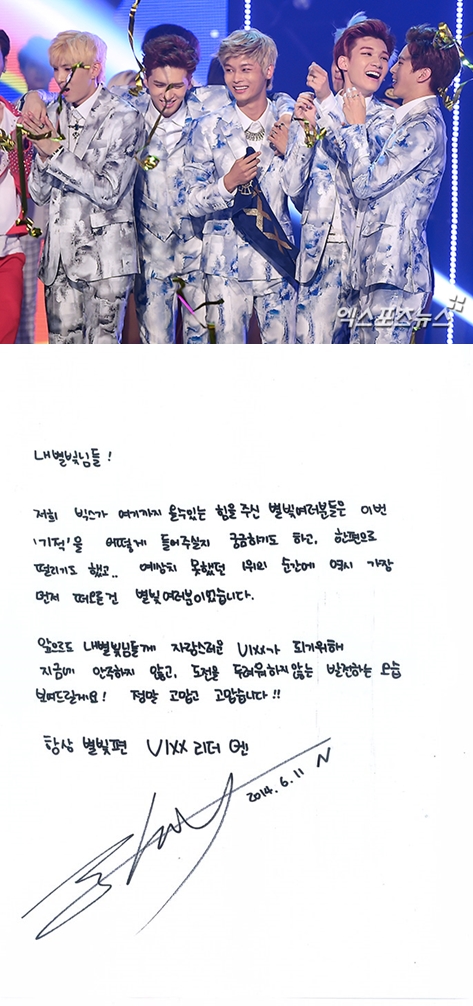 엑스포츠뉴스
내별빛님들!
저희 빅스가 여기까지 올수있는 힘을 주신 별빛여러분들은 이번
'기적'을 어떻게 들어주실지 궁금하기도 하고, 한편으로
떨리기도 했고.. 예상치 못했던 1위의 순간에 역시 가장
먼저 떠오른건 별빛여러분이었습니다.
앞으로도 내별빛님들게 자랑스러운 VIXX가 되기위해
지금에 안주하지 않고, 도전을 두려워하지않는 발전하는 모습
보여드릴게요! 정말 고맙고 고맙습니다!!
항상 별빛편 VIXX 리더 엔
2014.6.11 N